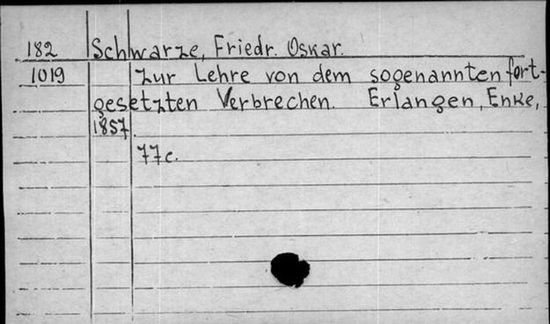 182 Schwarze, Friedr. Oskar.
1019 Zur Lehre von dem sogenannten fort-
gesetzten Verbrechen. Erlangen, Enke,
1857.
77c.